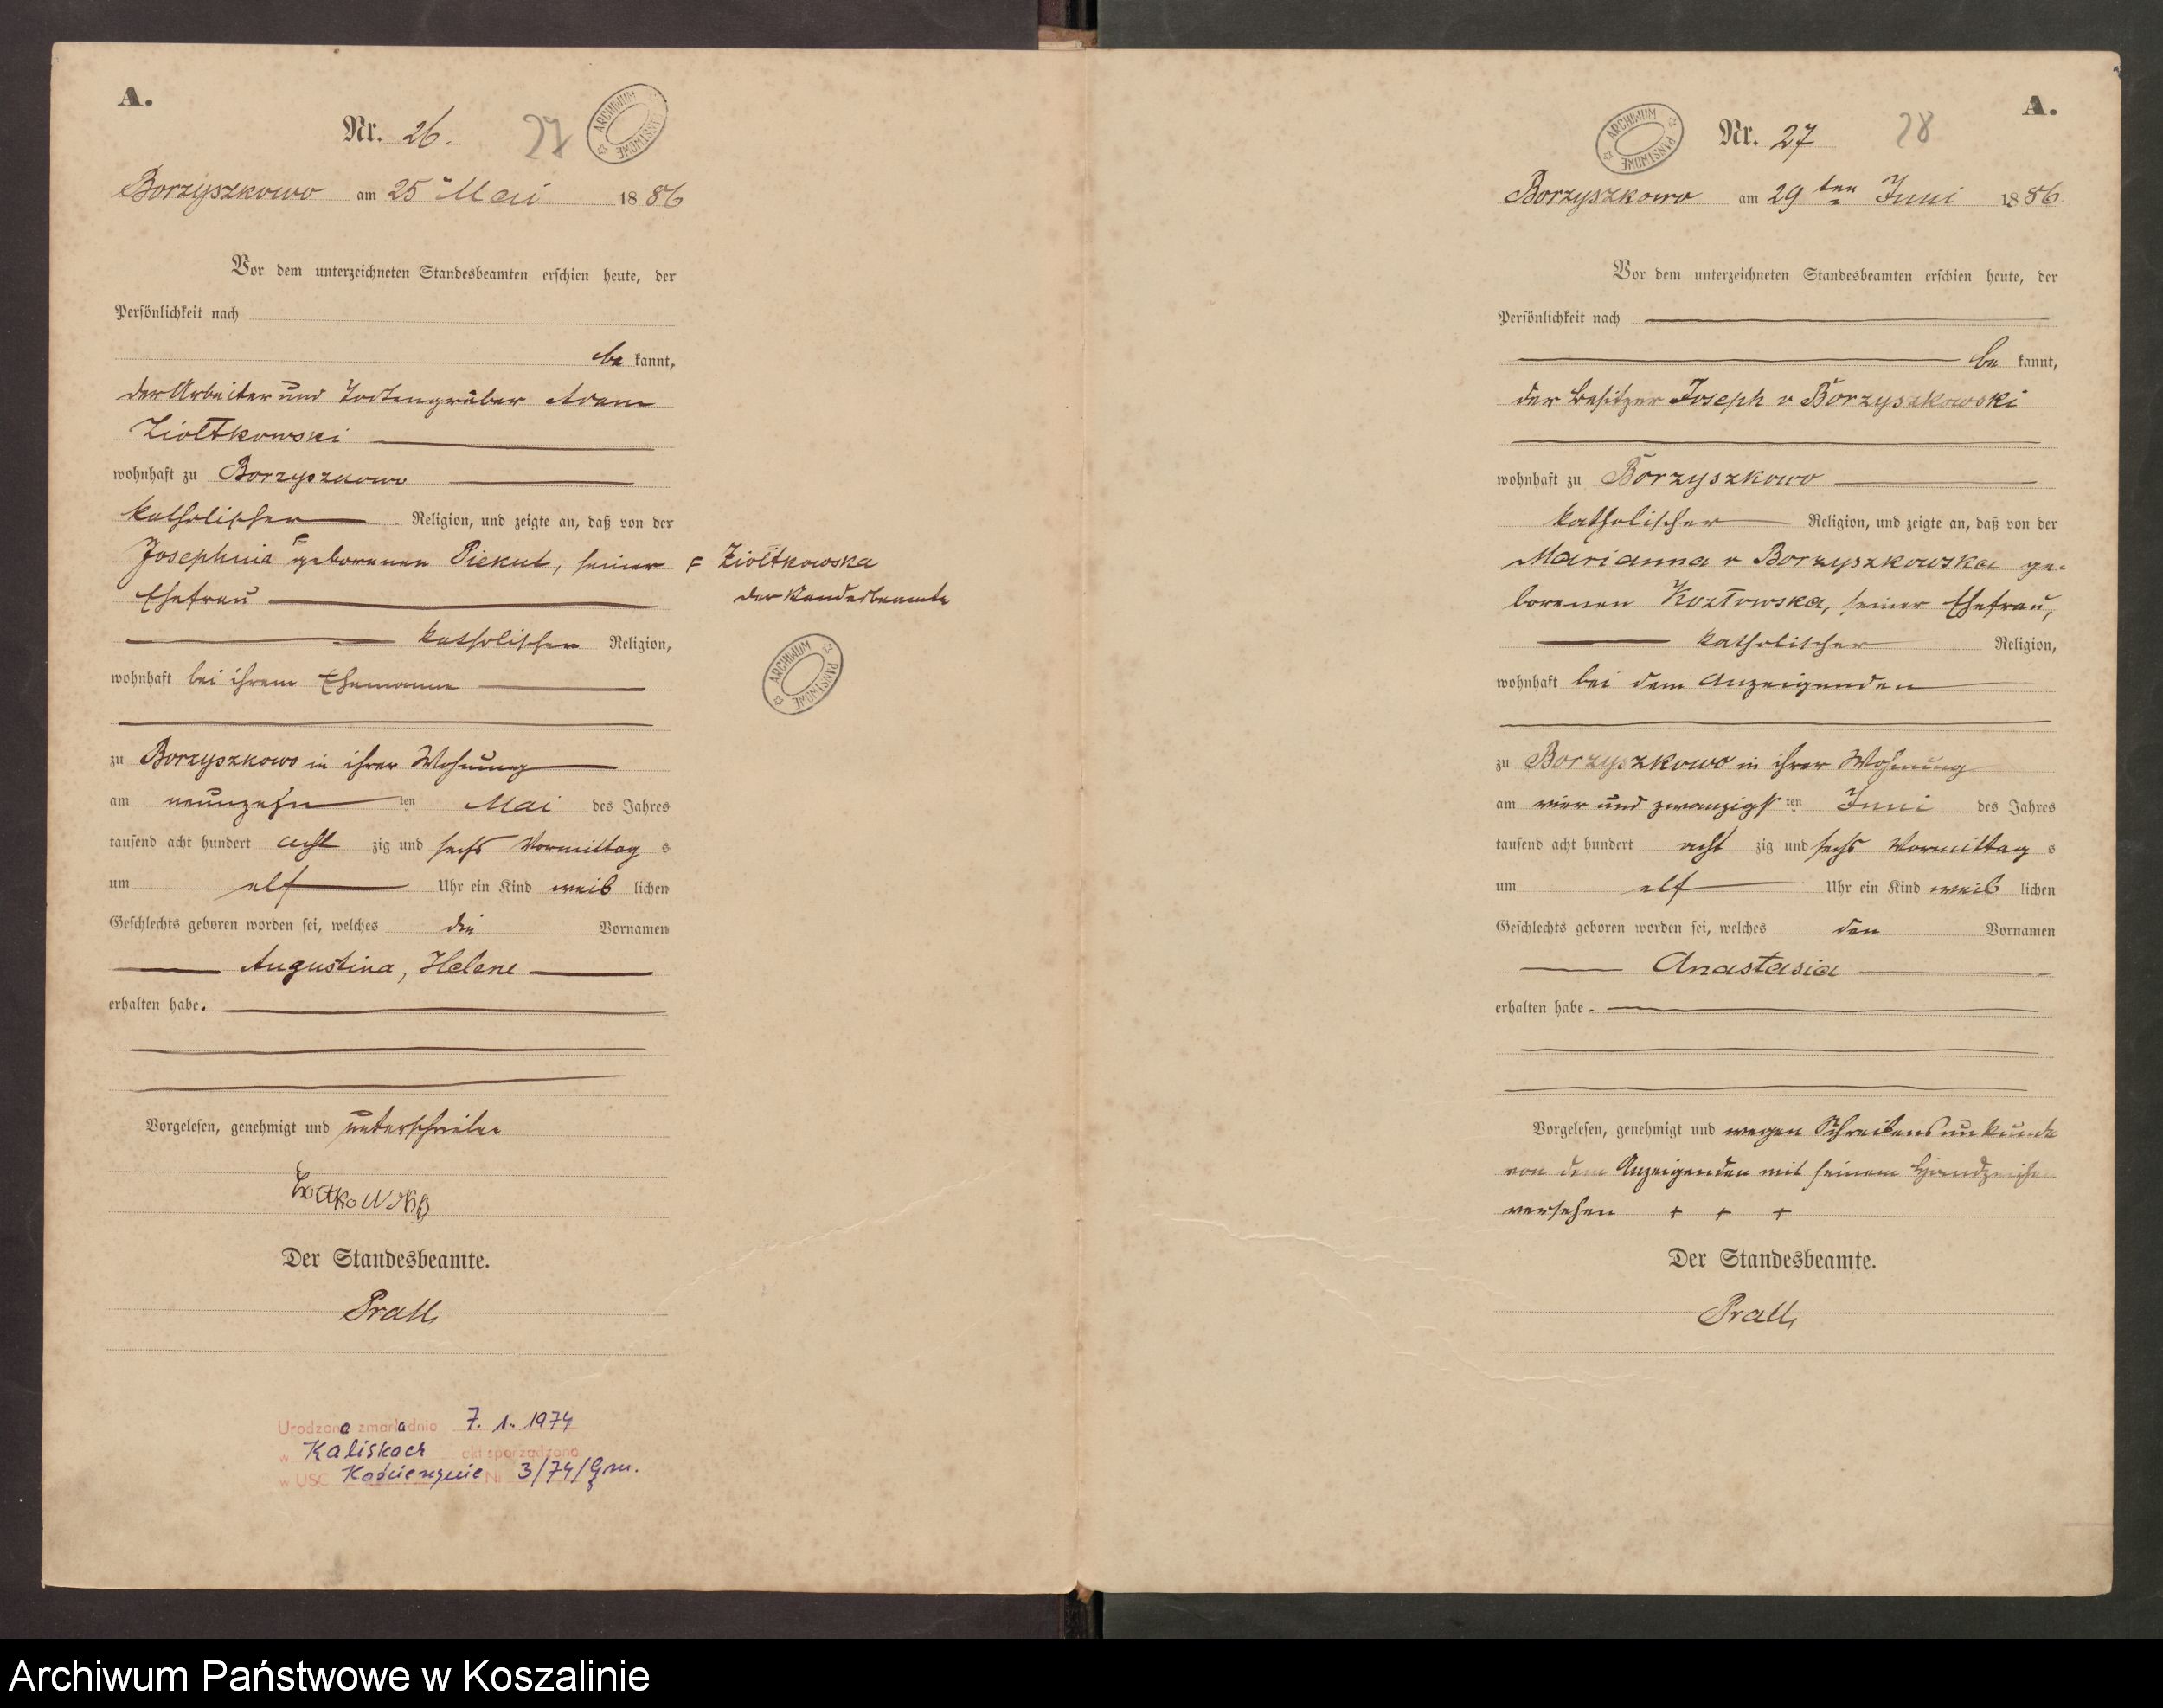 A.
Nr. 26. 27
ARCHIWUM PAŃSTWOWE
Borzyszkowo am 25 Mai 1886
Vor dem unterzeichneten Standesbeamten erschien heute, der
Persönlichkeit nach
be kannt,
der Arbeiter und Todtengräber Adam
Ziołtkowski
wohnhaft zu Borzyszkowo
katholischer Religion, und zeigte an, daß von der
Josephina geborenen Piekut, seiner
Ehefrau
katholischen Religion,
wohnhaft bei ihrem Ehemanne
zu Borzyszkowo in ihrer Wohnung
am neunzehn ten Mai des Jahres
tausend acht hundert acht zig und sechs Vormittag s
um elf Uhr ein Kind weib lichen
Geschlechts geboren worden sei, welches die Vornamen
Augustina, Helene
erhalten habe.
Vorgelesen, genehmigt und unterschrieben
Der Standesbeamte.
Prall
Urodzona zmarła dnia 7. 1. 1974
w Kaliskach akt sporządzono
w USC Kościerzynie Nr 3/74/
Ziołtkowska
der Standesbeamte
ARCHIWUM PAŃSTWOWE
A.
ARCHIWUM PAŃSTWOWE
Nr. 27 28
Borzyszkowo am 29ten Juni 1886
Vor dem unterzeichneten Standesbeamten erschien heute, der
Persönlichkeit nach
be kannt,
der Besitzer Joseph v Borzyszkowski
wohnhaft zu Borzyszkowo
katholischer Religion, und zeigte an, daß von der
Marianna v Borzyszkowska ge-
borenen Kozłowska, seiner Ehefrau,
katholischer Religion,
wohnhaft bei dem Anzeigenden
zu Borzyszkowo in ihrer Wohnung
am vier und zwanzigs ten Juni des Jahres
tausend acht hundert acht zig und sechs Vormittag s
um elf Uhr ein Kind weib lichen
Geschlechts geboren worden sei, welches den Vornamen
Anastasia
erhalten habe.
Vorgelesen, genehmigt und wegen Schreibensunkunde
von dem Anzeigenden mit seinem Handzeichen
versehen + + +
Der Standesbeamte.
Prall
Archiwum Państwowe w Koszalinie